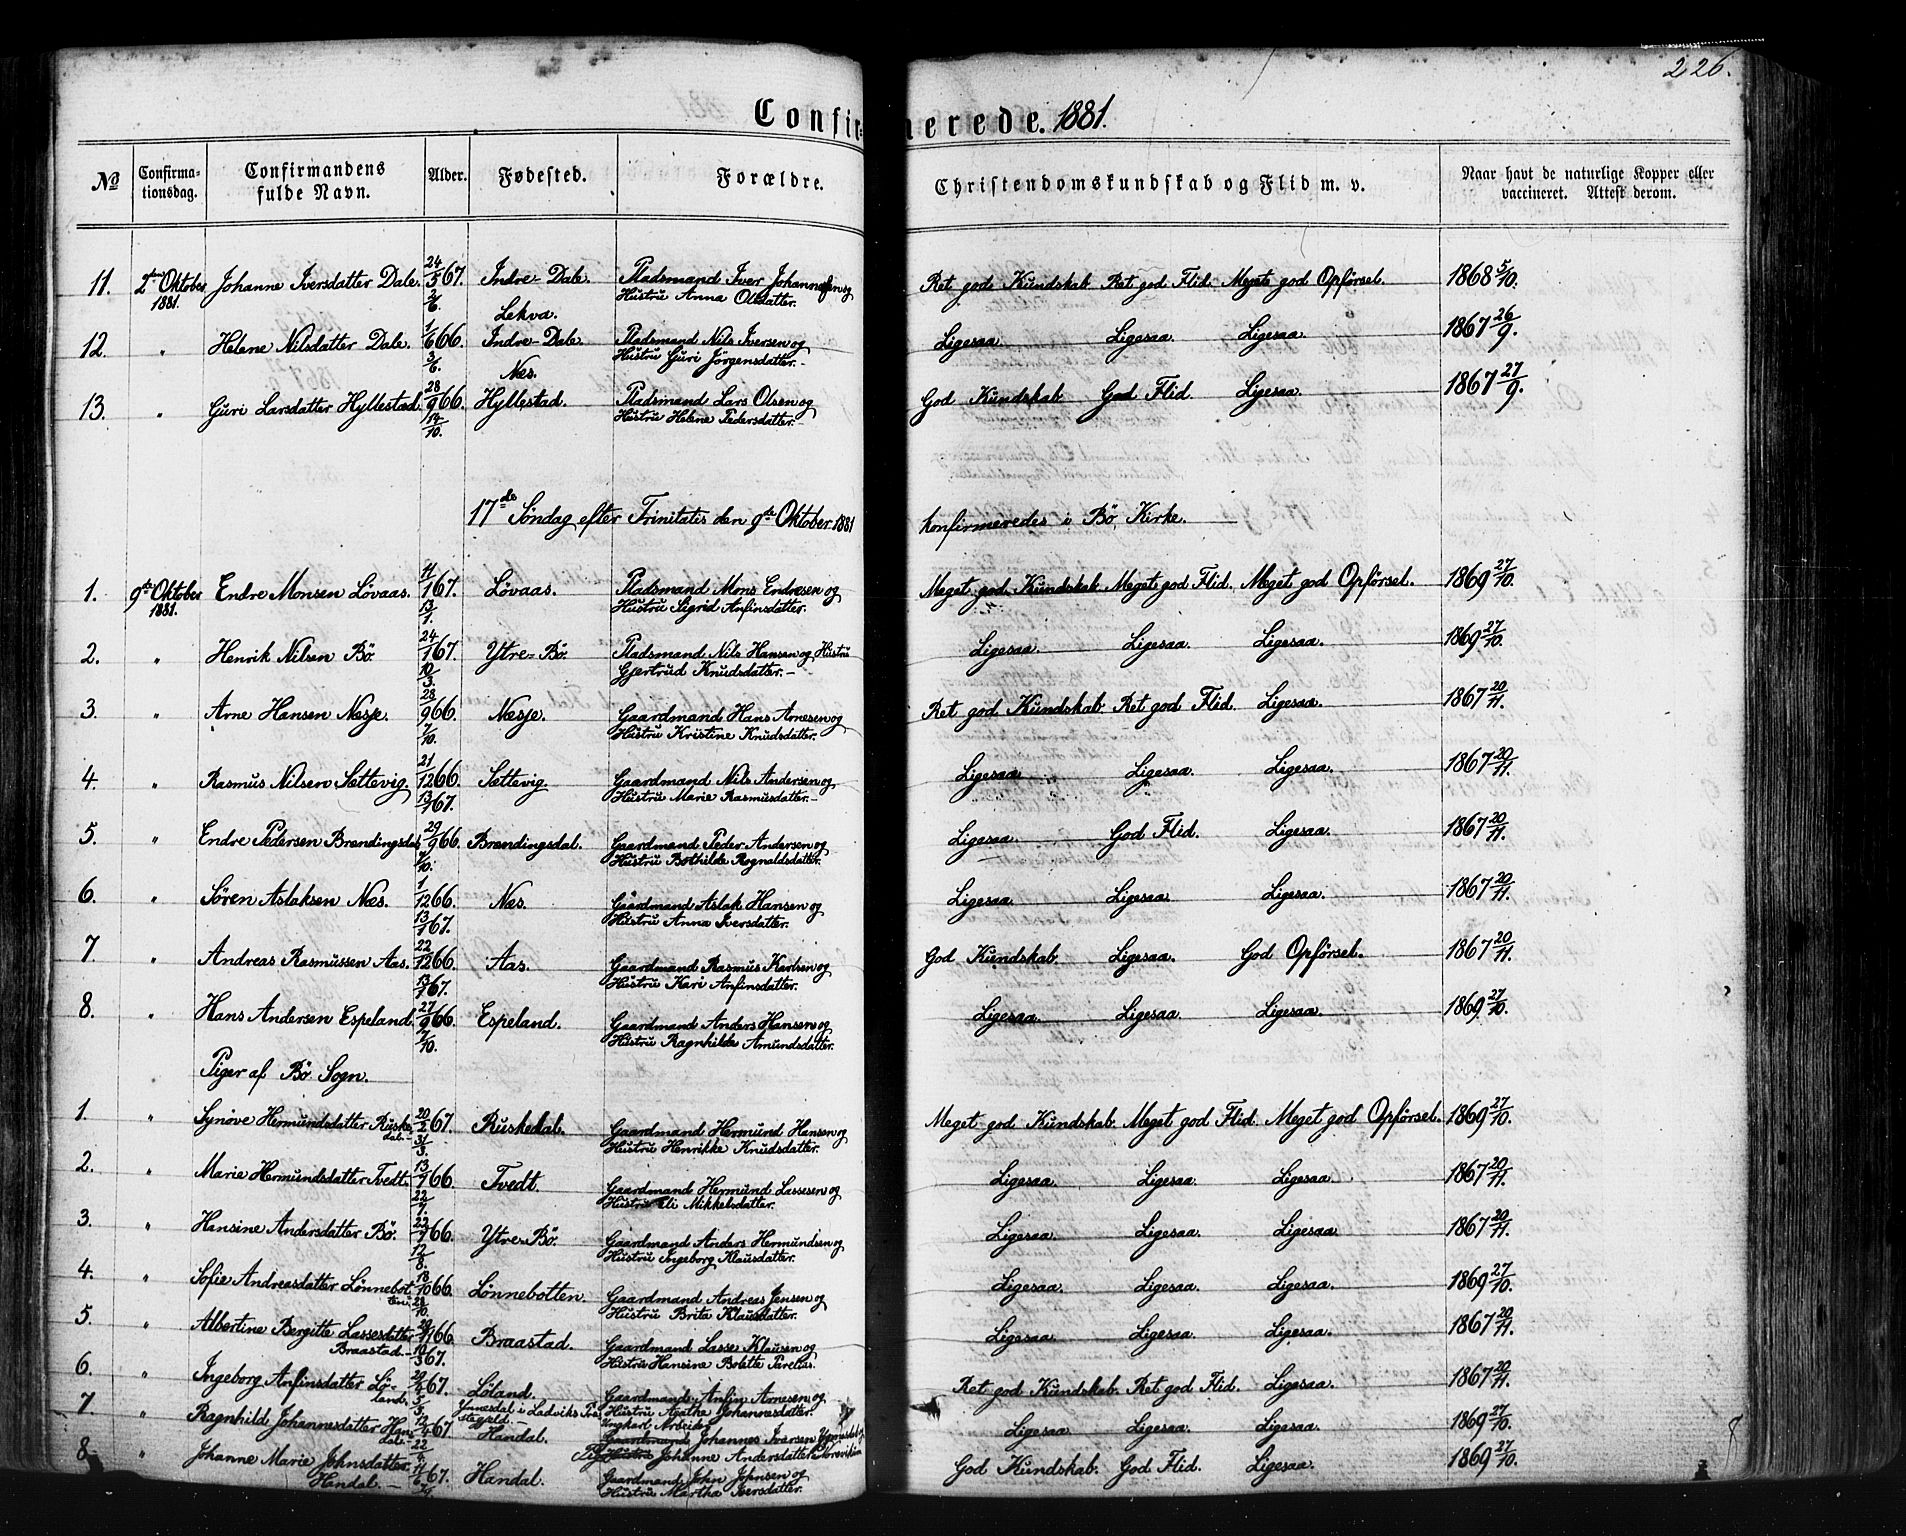 226.
Confirmerede. 1881.
No Confirmationsdag. Confirmandens fulde Navn. Alder. Fødested. Forældre. Christendomskundskab og Flid m. v. Naar havt de naturlige Kopper eller vaccineret. Attest derom.
11. 2den Oktober 1881. Johanne Iversdatter Dale. 24/5 67. 2/6. Indre-Dale. Pladsmand Iver Johannesen og Hustru Anna Olsdatter. Ret god Kundskab Ret god Flid. Meget god Opførsel. 1868 5/10.
Lekva.
12. " Helene Nilsdatter Dale. 1/6 66. 3/6. Indre-Dale. Pladsmand Nils Iversen og Hustru Guri Jörgensdatter. Ligesaa Ligesaa. Ligesaa. 1867 26/9.
Næs.
13. " Guri Larsdatter Hyllestad. 28/9 66. 14/10. Hyllestad. Pladsmand Lars Olsen og Hustru Helene Pedersdatter. God Kundskab God Flid. Ligesaa. 1867 27/9.
17de Söndag efter Trinitatis den 9de Oktober 1881 konfirmeredes i Bö Kirke.
1. 9de Oktober 1881. Endre Monsen Lövaas. 11/1 67. 13/1. Lövaas. Pladsmand Mons Endresen og Hustru Sigrid Anfinsdatter. Meget god Kundskab. Meget god Flid. Meget god Opförsel. 1869 27/10.
2. " Henrik Nilsen Bö. 24/1 67. 10/3. Ytre-Bö. Pladsmand Nils Hansen og Hustru Gjertrud Knudsdatter. Ligesaa. Ligesaa. Ligesaa. 1869 27/10.
3. " Arne Hansen Nesje. 28/9 66. 7/10. Nesje. Gaardmand Hans Arnesen og Hustru Kristine Knudsdatter. Ret god Kundskab. Ret god Flid. Ligesaa. 1867 20/11.
4. " Rasmus Nilsen Settevig. 21/12 66. 13/1 67. Settevig. Gaardmand Nils Andersen og Hustru Marie Rasmusdatter. Ligesaa. Ligesaa. Ligesaa. 1867 20/11.
5 " Endre Pedersen Brendingsdal 29/9 66. 7/10. Brendingsdal. Gaardmand Peder Andersen og Hustru Bothilde Rognaldsdatter. Ligesaa. God Flid. Ligesaa. 1867 20/11.
6. " Sören Aslaksen Næs. 1/12 66. 13/1 67. Næs. Gaardmand Aslak Hansen og Hustru Anna Iversdatter. Ligesaa. Ligesaa. Ligesaa. 1867 20/11.
7 " Andreas Rasmussen Aas. 22/12 66. 13/1 67. Aas. Gaardmand Rasmus Karlsen og Hustru Kari Anfinsdatter. God Kundskab. Ligesaa. God Opförsel. 1867 20/11.
8. " Hans Andersen Espeland. 27/9 66. 7/10. Espeland. Gaardmand Anders Hansen og Hustru Ragnhilde Amundsdatter. Ligesaa. Ligesaa. Ligesaa. 1869 27/10.
Piger af Bö Sogn.
1. " Synöve Hermundsdatter Ruskedal. 20/2 67. 31/3. Ruskedal. Gaardmand Hermund Hansen og Hustru Henrikke Knudsdatter. Meget god Kundskab. Meget god Flid. Meget god Opförsel. 1869 27/10.
2. " Marie Hermundsdatter Tvedt. 13/7 66. 22/7. Tvedt. Gaardmand Hermund Lassesen og Hustru Eli Mikkelsdatter. Ligesaa. Ligesaa. Ligesaa. 1867 20/11.
3. " Hansine Andersdatter Bö. 22/7 66. 12/8. Ytre-Bö. Gaardmand Anders Hermundsen og Hustru Ingeborg Klausdatter. Ligesaa. Ligesaa. Ligesaa. 1867 20/11.
4. " Sofie Andreasdatter Lönnebotten. 18/10 66. 28/10. Lönnebotten. Gaardmand Andreas Jensen og Hustru Brita Klausdatter. Ligesaa. Ligesaa. Ligesaa. 1869 27/10.
5. " Albertine Bergitte Lassesdatter Braastad. 66. 67. Braastad. Gaardmand Lasse Klausen og Hustru Hansine Bolette Parelius. Ligesaa. Ligesaa. Ligesaa. 1867 20/11.
6. " Ingeborg Anfinsdatter Löland. 67. Löland. Gaardmand Anfin Arnesen og Hustru Agathe Johannesdatter. Ret god Kundskab. Ret god Flid. Ligesaa. 1867 20/11.
7 " Ragnhilde Johannesdatter Handal. 12/4 67. Ynnesdal i Ladviks Præstegjeld. Handal. Ungkarl Arbeider Gaardmand Johannes Iversen Pige Hustru Johanne Andersdatter Ligesaa Ligesaa. Ligesaa. 1869 27/10.
8 " Johanne Marie Johnsdatter Handal. 67. Handal. Gaardmand John Johnsen og Hustru Martha Iversdatter. God Kundskab. God Flid. Ligesaa. 1869 27/10.